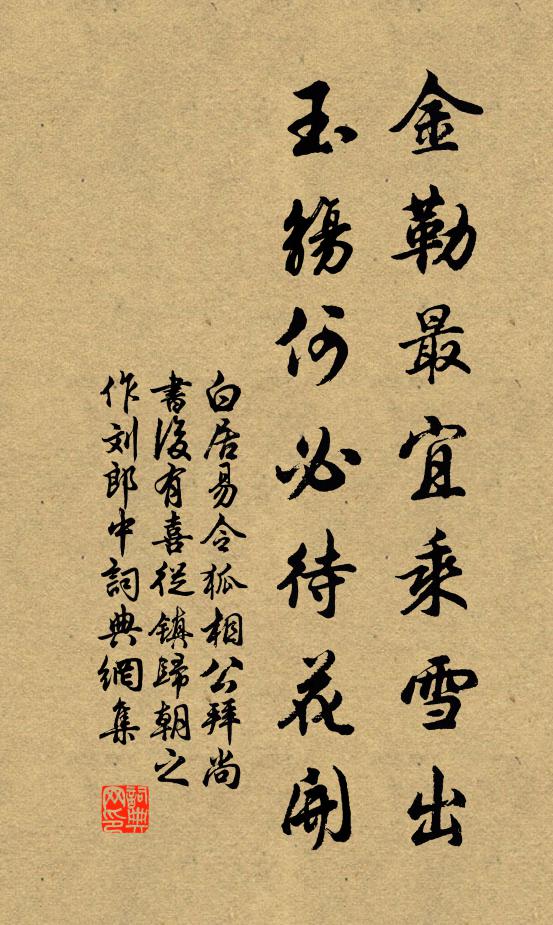 金勒最宜乘雪出
玉觴何必待花開
白居易令狐相公拜尚
書後有喜從鎮歸朝之
作刘郎中詞典網集
詞典网印